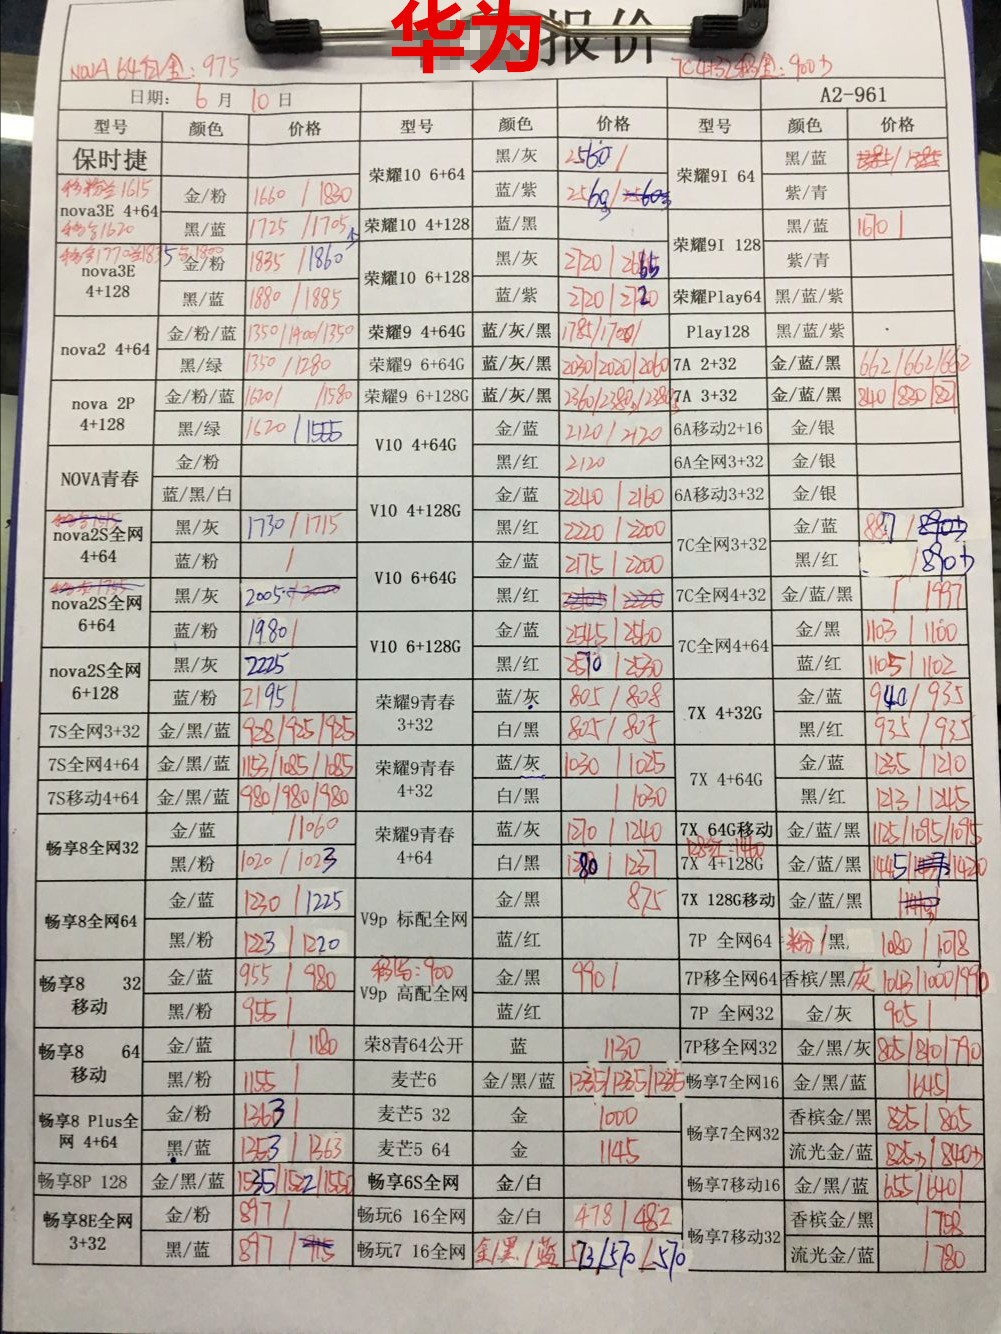 华为报价
NOVA 64红/金: 975
7C 4+32移金: 900
日期: 6 月 10 日
A2-961
型号 颜色 价格 型号 颜色 价格 型号 颜色 价格
保时捷 荣耀10 6+64 黑/灰 2560/ 荣耀9I 64 黑/蓝
移粉 1615
nova3E 4+64 金/粉 1660 / 1830 蓝/紫 2560/ 紫/青
1620
黑/蓝 1725 / 1705 荣耀10 4+128 蓝/黑 荣耀9I 128 黑/蓝 1670 /
nova3E 4+128 金/粉 1835 / 1860 荣耀10 6+128 黑/灰 2720 / 2685 紫/青
黑/蓝 1880 / 1885 蓝/紫 2720/2720 荣耀Play64 黑/蓝/紫
nova2 4+64 金/粉/蓝 1350/1400/1350 荣耀9 4+64G 蓝/灰/黑 1785/1700/ Play128 黑/蓝/紫
黑/绿 1350 / 1280 荣耀9 6+64G 蓝/灰/黑 2030/2020/2060 7A 2+32 金/蓝/黑 662/662/662
nova 2P 4+128 金/粉/蓝 1620/ /1580 荣耀9 6+128G 蓝/灰/黑 2360/2380/2380 7A 3+32 金/蓝/黑 840/830/821
黑/绿 1620 / 1555 V10 4+64G 金/蓝 2120/2120 6A移动2+16 金/银
NOVA青春 金/粉 黑/红 2120 6A全网3+32 金/银
蓝/黑/白 V10 4+128G 金/蓝 2240 / 2160 6A移动3+32 金/银
nova2S全网 4+64 黑/灰 1730 / 1715 黑/红 2220 / 2200 7C全网3+32 金/蓝 887 / 890
蓝/粉 / V10 6+64G 金/蓝 2175 / 2200 黑/红 / 890
nova2S全网 6+64 黑/灰 2005 黑/红 7C全网4+32 金/蓝/黑 / 1997
蓝/粉 1980/ V10 6+128G 金/蓝 2545 / 2560 7C全网4+64 金/黑 1103 / 1100
nova2S全网 6+128 黑/灰 2225 黑/红 2570 / 2530 蓝/红 1105 / 1102
蓝/粉 2195/ 荣耀9青春 3+32 蓝/灰 805 / 808 7X 4+32G 金/蓝 940 / 935
7S全网3+32 金/黑/蓝 928/925/925 白/黑 805 / 805 黑/红 935 / 935
7S全网4+64 金/黑/蓝 1153/1085/1085 荣耀9青春 4+32 蓝/灰 1030 / 1025 7X 4+64G 金/蓝 1235 / 1210
7S移动4+64 金/黑/蓝 980/980/980 白/黑 / 1030 黑/红 1213 / 1245
畅享8全网32 金/蓝 /1060 荣耀9青春 4+64 蓝/灰 1270 / 1240 7X 64G移动 金/蓝/黑 1125/1095/1095
黑/粉 1020 / 1023 白/黑 1280 / 1237 7X 4+128G 金/蓝/黑 1445/ /1420
畅享8全网64 金/蓝 1230 / 1225 V9p 标配全网 金/黑 875 7X 128G移动 金/蓝/黑
黑/粉 1223 / 1220 蓝/红 7P 全网64 粉/黑 1080 / 1078
畅享8 32 移动 金/蓝 955 / 980 移 : 900
V9p 高配全网 金/黑 990/ 7P移全网64 香槟/黑/灰 1043/1000/990
黑/粉 955 / 蓝/红 7P 全网32 金/灰 905 /
畅享8 64 移动 金/蓝 / 1180 荣8青64公开 蓝 1130 7P移全网32 金/黑/灰 805/840/790
黑/粉 1155 / 麦芒6 金/黑/蓝 1335/1335/1335 畅享7全网16 金/黑/蓝 /645/
畅享8 Plus全网 4+64 金/粉 1363/ 麦芒5 32 金 1000 畅享7全网32 香槟金/黑 825 / 805
黑/蓝 1353 / 1363 麦芒5 64 金 1145 流光金/蓝 825 / 840
畅享8P 128 金/黑/蓝 1535/1522/1550 畅享6S全网 金/白 畅享7移动16 金/黑/蓝 655/640/
畅享8E全网 3+32 金/粉 897 / 畅玩6 16全网 金/白 478 / 482 畅享7移动32 香槟金/黑 / 758
黑/蓝 897 / 畅玩7 16全网 金/黑/蓝 573/570/570 流光金/蓝 / 780